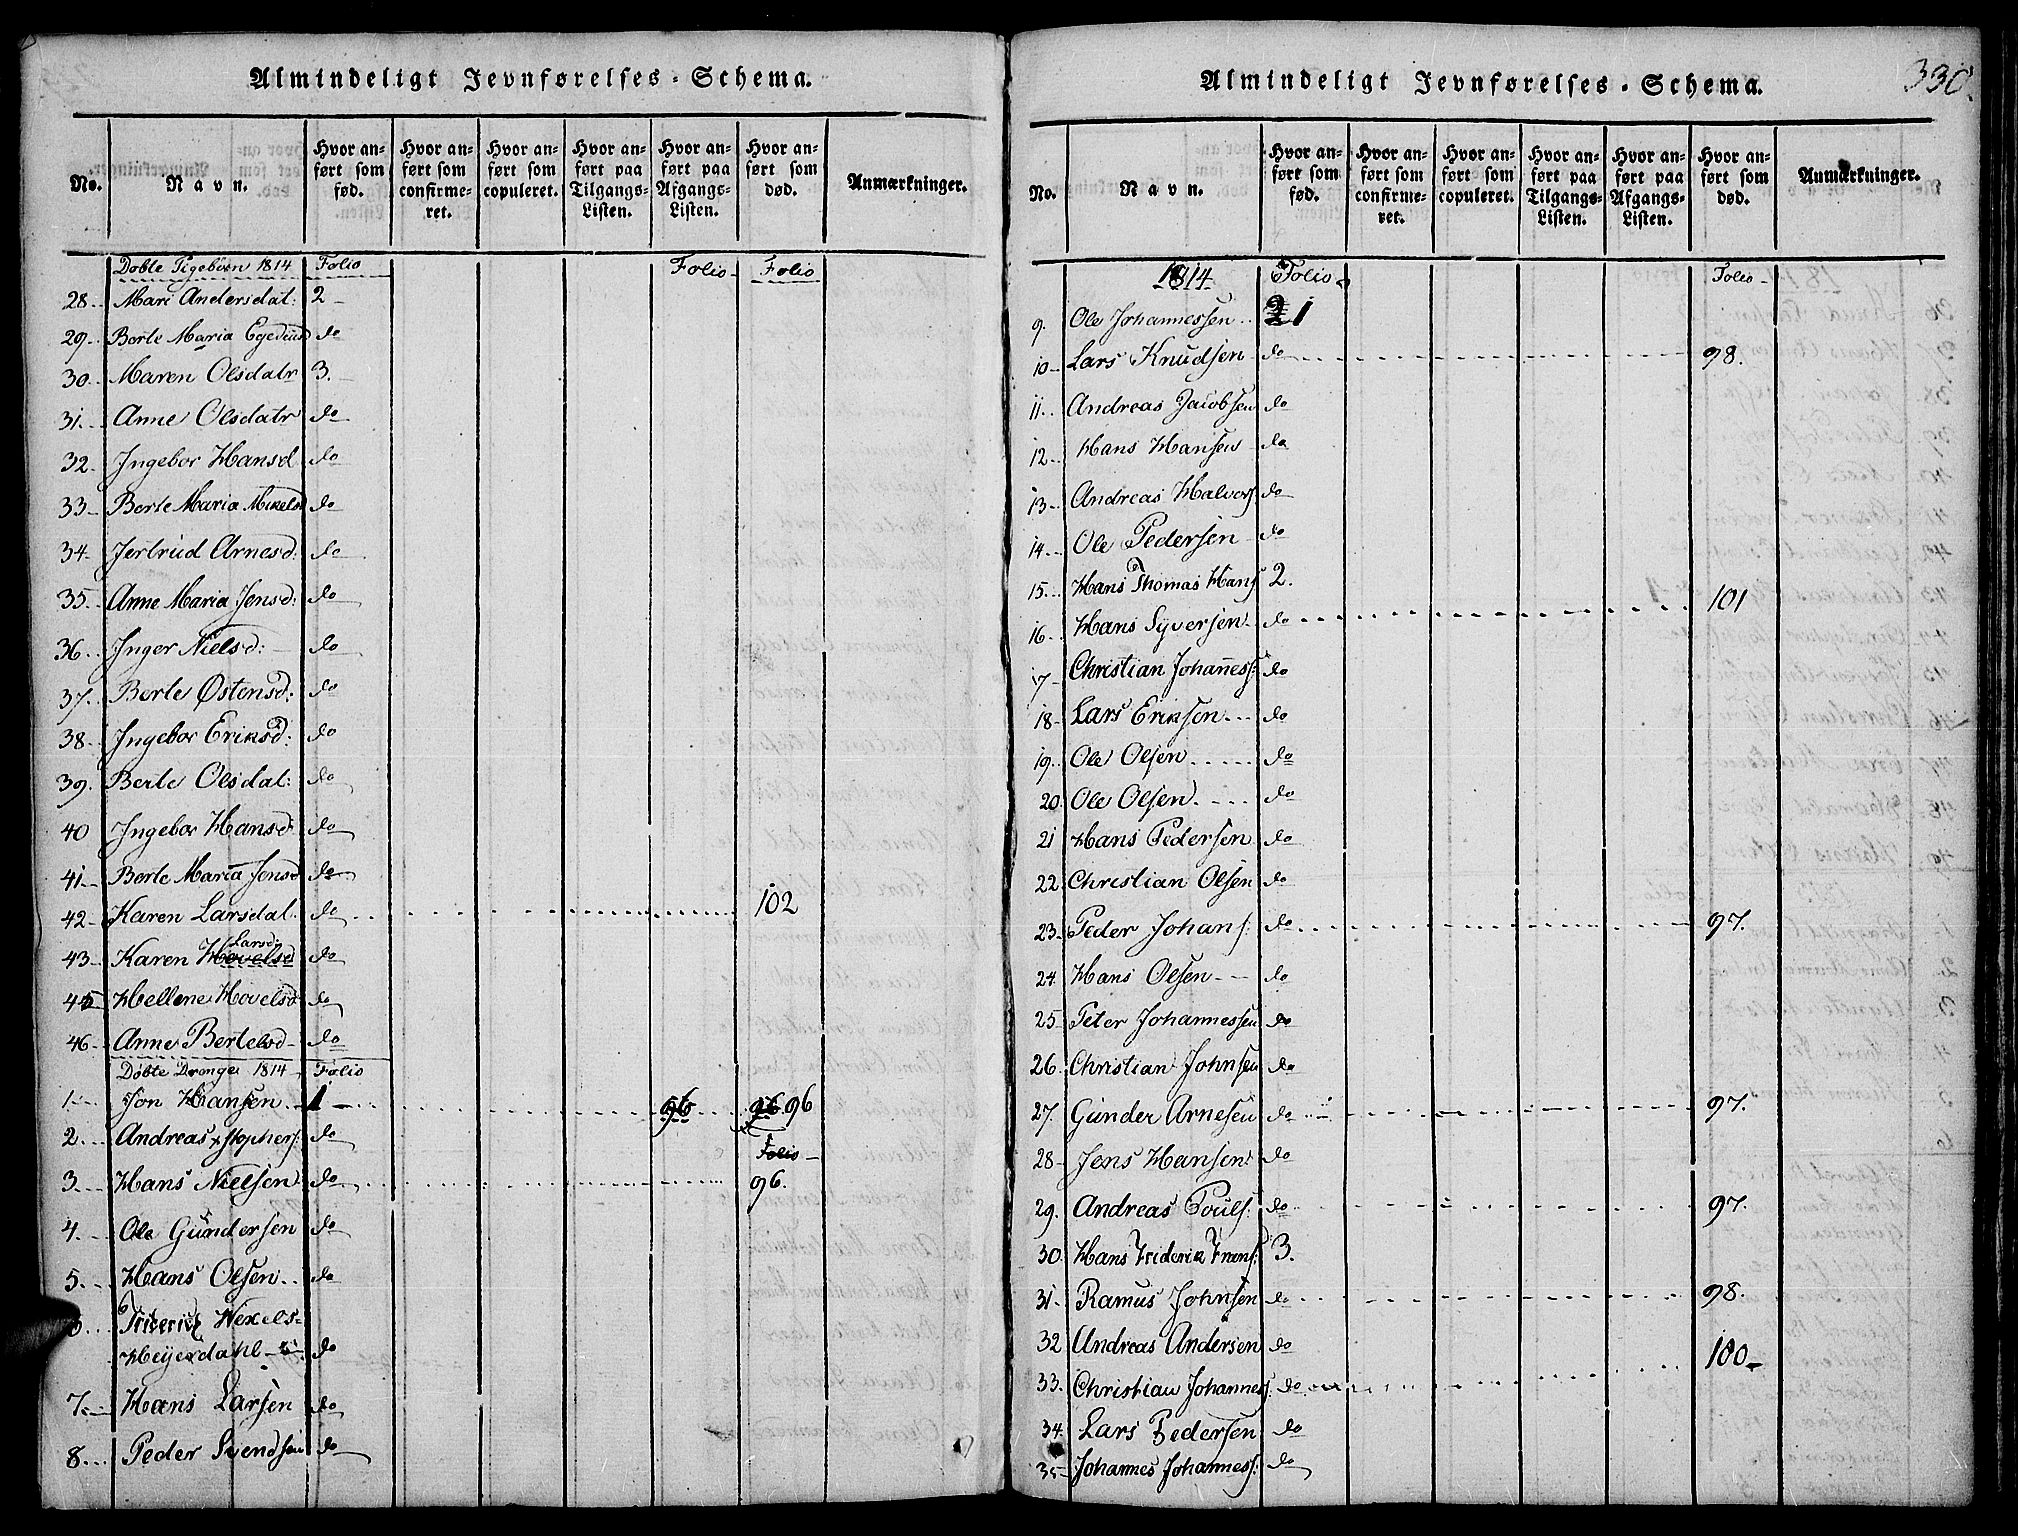 Almindeligt Jevnførelses-Schema.
No. Navn. Hvor anført som fød. Hvor anført som confirmeret. Hvor anført som copuleret. Hvor anført paa Tilgangs-Listen. Hvor anført paa Afgangs-Listen. Hvor anført som død. Anmærkninger.
Døbte Pigebörn 1814 Folio Folio Folio
28 Mari Andersdat: 2
29 Berte Maria do
30 Maren Olsdatr 3.
31 Anne Olsdatr do
32 Ingebor Hansd do
33 Berte Maria Mikelsd do
34 Jertrud Arnesd: do
35 Anne Maria Jensd: do
36 Inger Nielsd: do
37. Berte Østensd: do
38 Ingebor Eriksd: do
39. Berte Olsdat: do
40 Ingebor Hansd do
41 Berte Maria Jensd do
42 Karen Larsdat. do 102
Larsd:
43 Karen Hovelsd do
45 Hellene Hovelsd do
46 Anne Bertelsd do
Döbte Drenge 1814 Folio
1 Jon Hansen 1 96 96 96
2. Andreas xstophers: do Folio
3. Hans Nielsen do 96.
4. Ole Gundersen do
5. Hans Olsen do
6. Friderik Wexels
Heyerdahl do
7. Hans Larsen do
8. Peder Svendsen do
Almindeligt Jevnførelses-Schema. 330.
No. Navn. Hvor anført som fød. Hvor anført som confirmeret. Hvor anført som copuleret. Hvor anført paa Tilgangs-Listen. Hvor anført paa Afgangs-Listen. Hvor anført som død. Anmærkninger.
1814 Folio Folio
9. Ole Johannessen 2 1
10 Lars Knudsen do 98.
11. Andreas Jacobsen do
12 Hans Hansen do
13 Andreas Halvors do
14 Ole Pedersen do
15 Hans Thomas Hans 2.
16 Hans Syversen do 101
17 Christian Johanness: do
18 Lars Eriksen do
19. Ole Olsen do
20 Ole Olsen do
21 Hans Pedersen do
22 Christian Olsen do
23 Peder Johans: do 97.
24 Hans Olsen do
25 Peter Johannessen do
26. Christian Johnsen do
27. Gunder Arnesen do 97.
28 Jens Hansen do
29. Andreas Pouls: do 97.
30 Hans Friderik Frans: 3.
31 Ramus Johnsen do 98.
32 Andreas Andersen do
33. Christian Johannes: do 100
34 Lars Pedersen do
35 Johannes Johanness: do